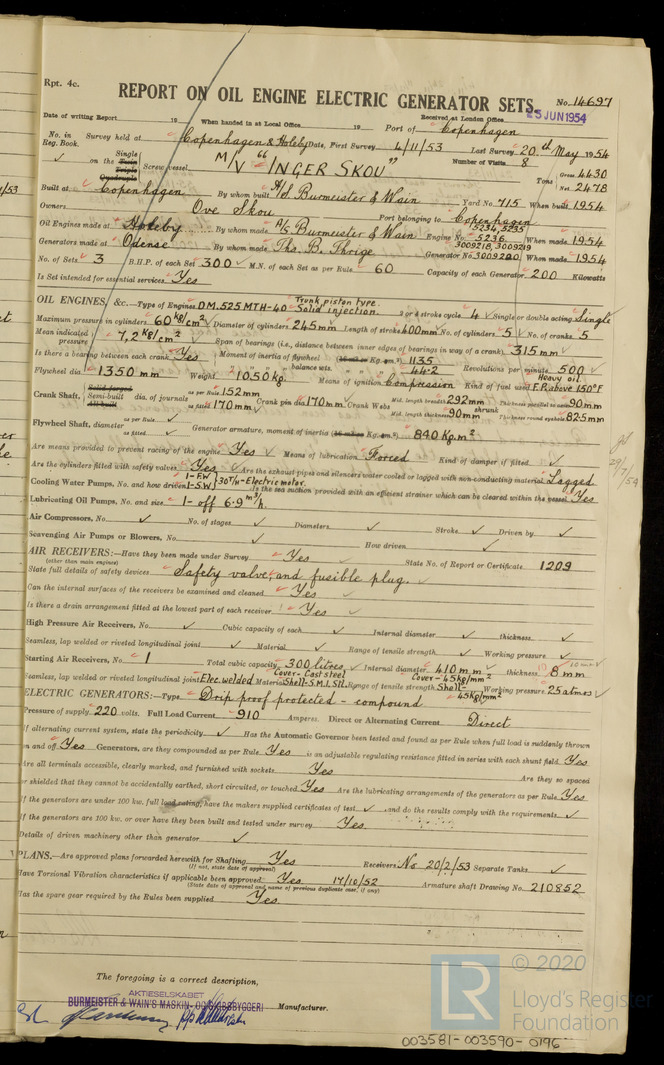 Rpt. 4c.
REPORT ON OIL ENGINE ELECTRIC GENERATOR SETS. No. 14697
25 JUN 1954
Date of writing Report 19 When handed in at Local Office 19 Received at London Office
Port of Copenhagen
No. in Reg. Book. Survey held at Copenhagen & Holeby Date, First Survey 4/11/53 Last Survey 20th May 1954
Number of Visits 8
on the Single Twin Triple Quadruple Screw vessel M/V "INGER SKOU" Tons Gross 4430 Net 2478
Built at Copenhagen By whom built A/S. Burmeister & Wain Yard No. 715 When built 1954
Owners Ove Skou Port belonging to Copenhagen
Oil Engines made at Holeby By whom made A/S. Burmeister & Wain Engine No. 5234, 5235 5236 When made 1954
Generators made at Odense By whom made Ths. B. Thrige Generator No. 3009218, 3009219 3009220 When made 1954
No. of Sets 3 B.H.P. of each Set 300 M.N. of each Set as per Rule 60 Capacity of each Generator 200 Kilowatts
Is Set intended for essential services Yes
OIL ENGINES, &c.—Type of Engines DM. 525 MTH-40 Trunk piston type. Solid injection. 2 or 4 stroke cycle 4 Single or double acting Single
Maximum pressure in cylinders 60 kg/cm² Diameter of cylinders 245 mm Length of stroke 400 mm No. of cylinders 5 No. of cranks 5
Mean indicated pressure 7,2 kg/cm² Span of bearings (i.e., distance between inner edges of bearings in way of a crank) 315 mm
Is there a bearing between each crank Yes Moment of inertia of flywheel Kg.m² 1135 balance wts. 44·2 Revolutions per minute 500
Flywheel dia. 1350 mm Weight 1050 kg. Means of ignition Compression Kind of fuel used Heavy oil F.P. above 150°F
Crank Shaft, Solid forged Semi-built All built dia. of journals as per Rule 152 mm as fitted 170 mm Crank pin dia. 170 mm Crank Webs Mid. length breadth 292 mm Mid. length thickness 90 mm shrunk Thickness parallel to axis 90 mm Thickness round eyehole 82.5 mm
Flywheel Shaft, diameter as per Rule as fitted Generator armature, moment of inertia Kg.m² 840 Kg.m²
Are means provided to prevent racing of the engine Yes Means of lubrication Forced Kind of damper if fitted
Are the cylinders fitted with safety valves Yes Are the exhaust pipes and silencers water cooled or lagged with non-conducting material Lagged
Cooling Water Pumps, No. and how driven 1-F.W 1-S.W } 30T/H-Electric motor. Is the sea suction provided with an efficient strainer which can be cleared within the vessel Yes
Lubricating Oil Pumps, No. and size 1- off 6·9 m³/h.
Air Compressors, No. No. of stages Diameters Stroke Driven by
Scavenging Air Pumps or Blowers, No. How driven
AIR RECEIVERS:—Have they been made under Survey Yes State No. of Report or Certificate 1209
(other than main engines)
State full details of safety devices Safety valve, and fusible plug.
Can the internal surfaces of the receivers be examined and cleaned Yes
Is there a drain arrangement fitted at the lowest part of each receiver Yes
High Pressure Air Receivers, No. Cubic capacity of each Internal diameter thickness
Seamless, lap welded or riveted longitudinal joint Material Range of tensile strength Working pressure
Starting Air Receivers, No. 1 Total cubic capacity 300 litres Internal diameter 410 mm thickness 8 mm
Seamless, lap welded or riveted longitudinal joint Elec. welded Material Cover- Cast steel Shell- S.M.I. St. Range of tensile strength Cover - 45kg/mm² Shell- 45kg/mm² Working pressure 25 atmos
ELECTRIC GENERATORS:—Type Drip proof protected - compound
Pressure of supply 220 volts. Full Load Current 910 Amperes. Direct or Alternating Current Direct
If alternating current system, state the periodicity Has the Automatic Governor been tested and found as per Rule when full load is suddenly thrown
on and off Yes Generators, are they compounded as per Rule Yes is an adjustable regulating resistance fitted in series with each shunt field Yes
Are all terminals accessible, clearly marked, and furnished with sockets Yes Are they so spaced
or shielded that they cannot be accidentally earthed, short circuited, or touched Yes Are the lubricating arrangements of the generators as per Rule Yes
If the generators are under 100 kw. full load rating, have the makers supplied certificates of test and do the results comply with the requirements
If the generators are 100 kw. or over have they been built and tested under survey Yes
Details of driven machinery other than generator
PLANS.—Are approved plans forwarded herewith for Shafting Yes Receivers No 20/2/53 Separate Tanks
(If not, state date of approval)
Have Torsional Vibration characteristics if applicable been approved Yes 17/10/52 Armature shaft Drawing No. 210852
(State date of approval and name of previous duplicate case, if any)
Has the spare gear required by the Rules been supplied Yes
The foregoing is a correct description,
AKTIESELSKABET
BURMEISTER & WAIN'S MASKIN- OG SKIBSBYGGERI Manufacturer.
LR © 2020
Lloyd's Register
Foundation
003581-003590-0196